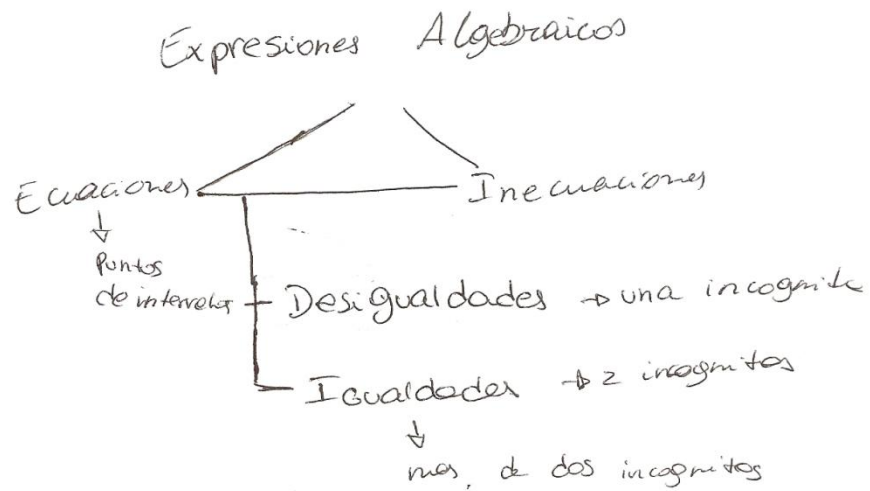 Expresiones Algebraicos
Ecuaciones
Inecuaciones
Puntos
de intervalos
Desigualdades → una incognita
Igualdades → 2 incognitos
mas de dos incognitos